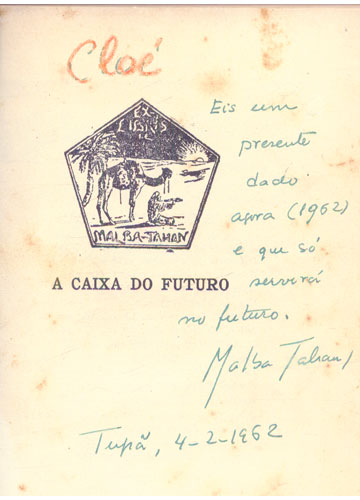 Cloé
EX
LIBRIS
MALBA-TAHAN
A CAIXA DO FUTURO
Eis um
presente
dado
agora (1962)
e que só
servirá
no futuro.
Malba Tahan
Tupã, 4-2-1962